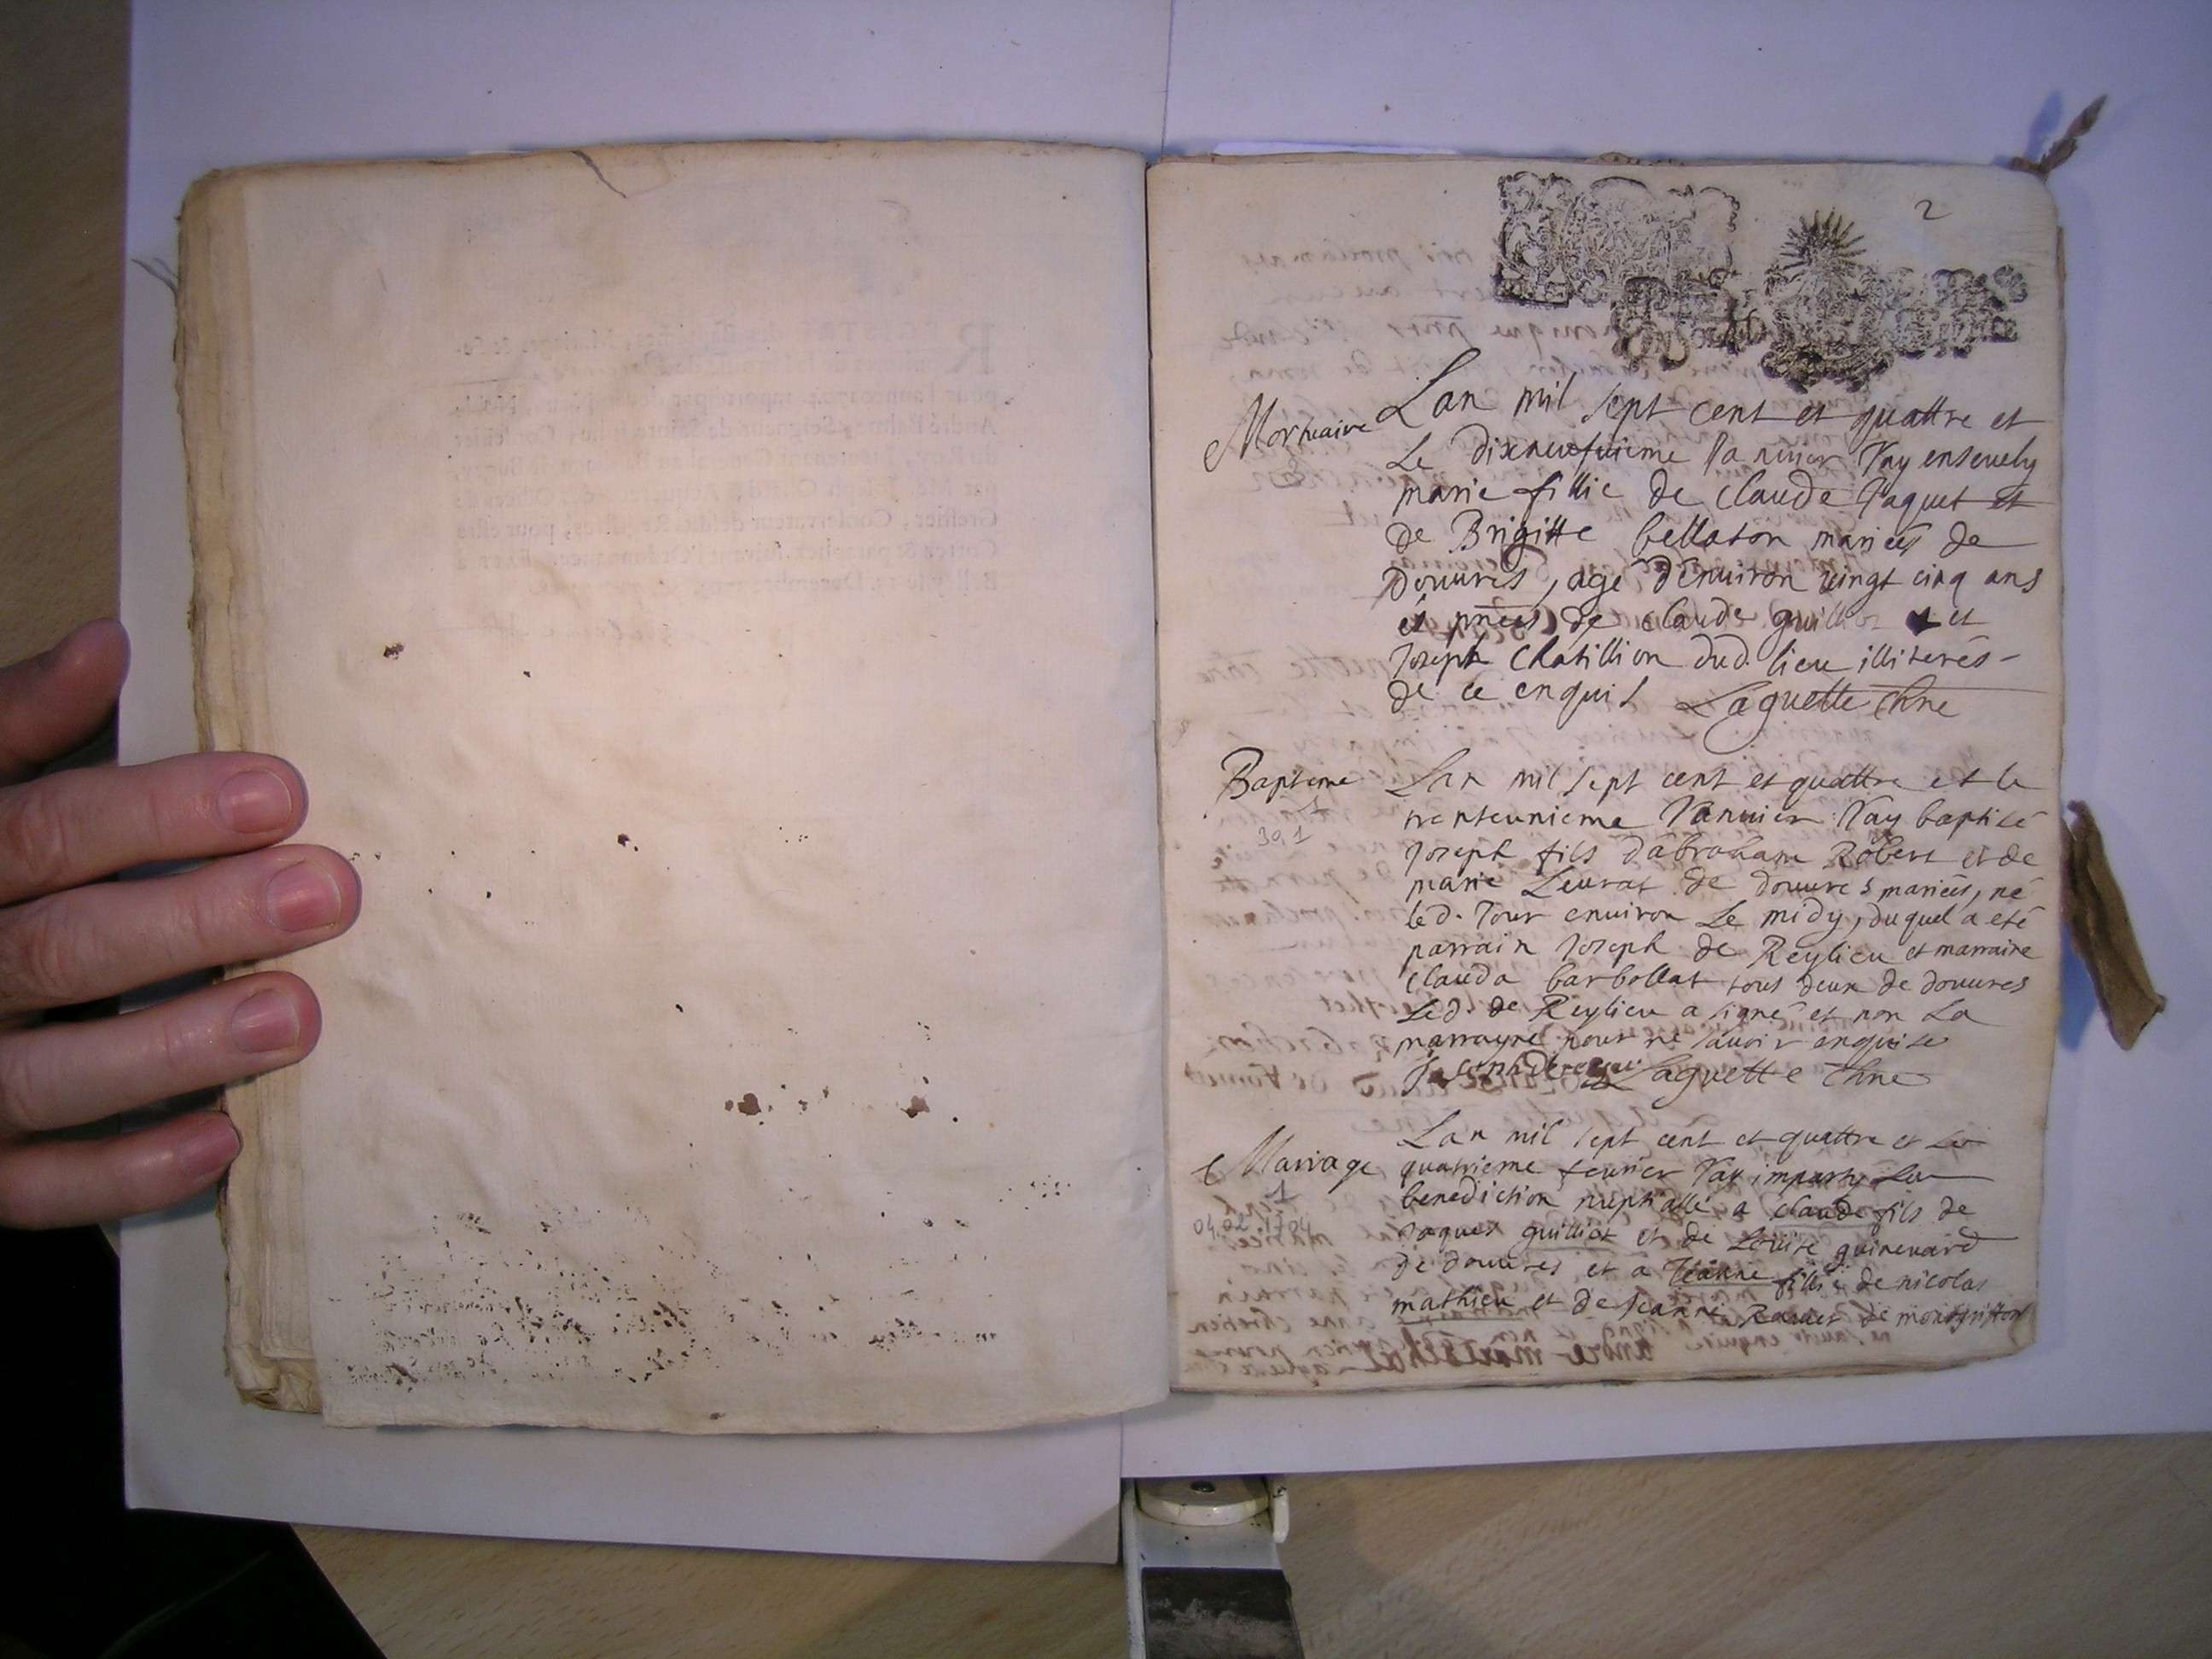 2
Mortuaire Lan mil sept cent et quattre et
Le dixneufvieme Ianuier Iay enseuely
marie fillie de Claude Paquet et
de Brigitte bellaton mariés de
Douures, agé d'enuiron vingt cinq ans
és pnces de claude guilliot et
Joseph Chatillion dud. lieu illiterés
de ce enquis Laguette Chne
Bapteme Lan mil sept cent et quattre et le
1
39,1
trenteunieme Ianuier Iay baptisé
Joseph fils d'abraham Robert et de
marie Leurat de douures mariés, né
led. Iour enuiron Le midy, duquel a eté
parrain Joseph de Reylieu et marraine
Clauda barbollat tous deux de douures
Led. de Reylieu a signé et non La
marrayne pour ne sauoir enquise
Laguette Chne
Lan mil sept cent et quattre et Le
Mariage quatrieme feurier Iay imparty La
1
benediction nuptialle a claude fils de
04.02.1704
Jaques guilliot et de Louise guineuard
de douures et a Jeanne fillie de nicolas
mathieu et de Jeanne de montgriffon